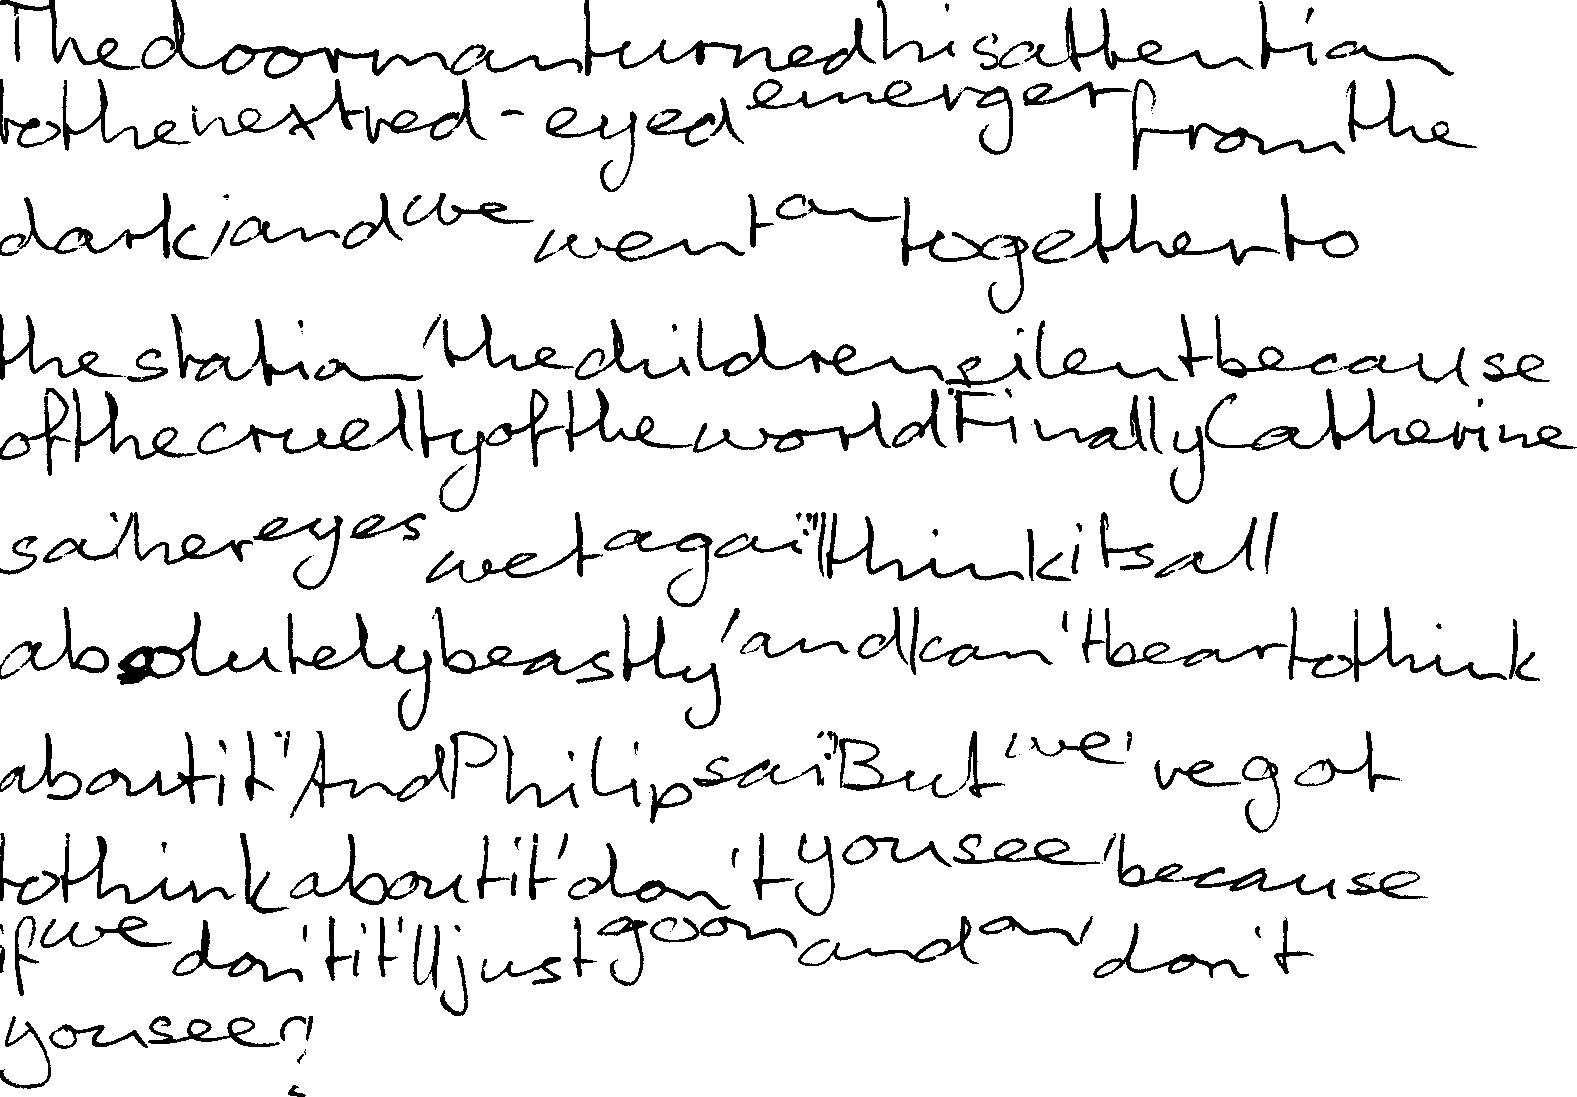 The doorman turned his attention
to the next red-eyed emerger from the
dark, and we went on together to
the station, the children silent because
of the cruelty of the world. Finally Catherine
sai, her eyes wet again: "I think it's all
absolutely beastly, and I can't bear to think
about it." And Philip sai: "But we've got
to think about it, don't you see, because
if we don't it'll just go on and on, don't
you see?"